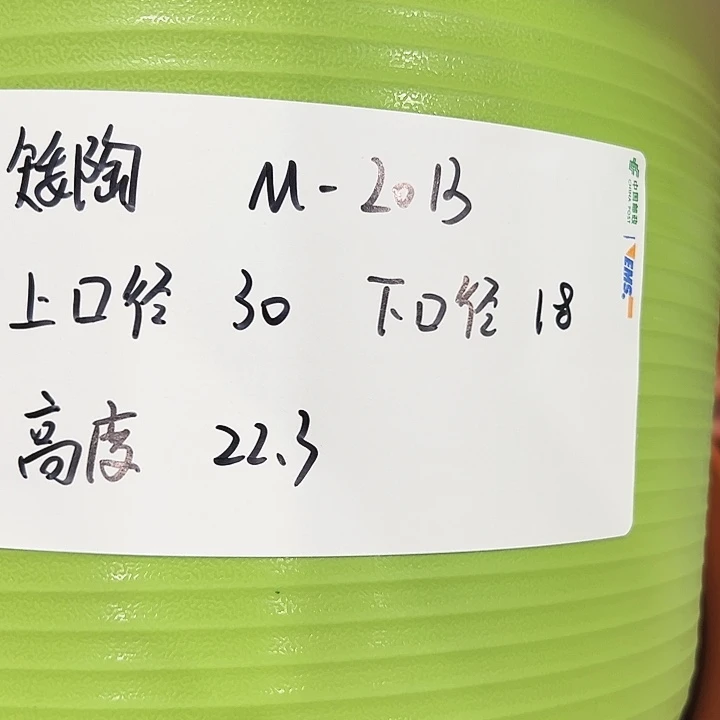 矮陶 M-20B
上口径 30 下口径 18
高度 22.3
中国邮政
CHINA POST
EMS